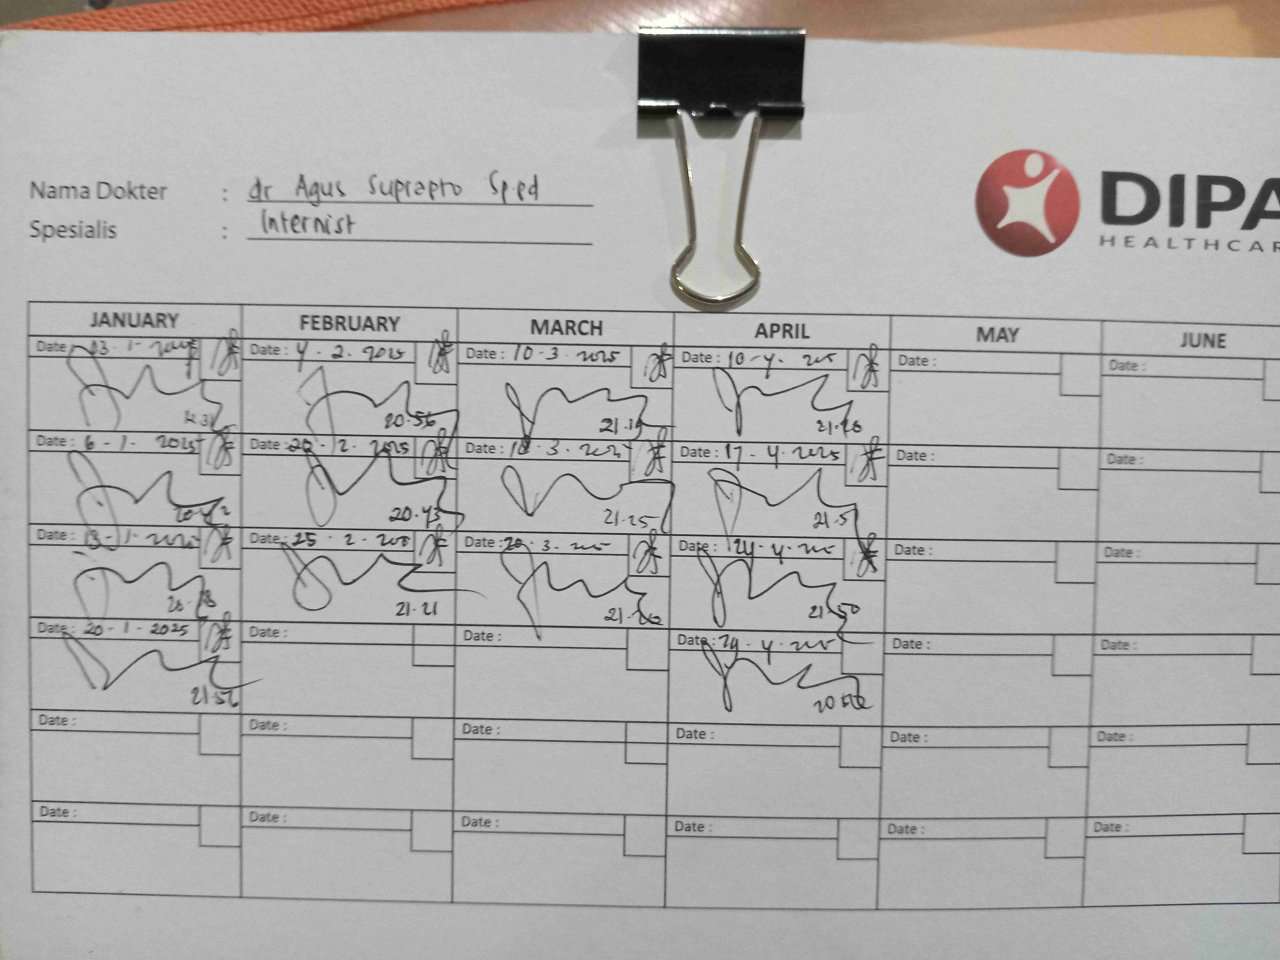 Nama Dokter : dr Agus Suprapto Sp.pd
Spesialis : Internist
DIPA
HEALTHCAR
JANUARY FEBRUARY MARCH APRIL MAY JUNE
Date : 13-1-2025 Date : 4-2-2025 Date : 10-3-2025 Date : 10-4-2025 Date : Date :
20.56 21.19
Date : 6-1-2025 Date : 20-2-2025 Date : 18-3-2025 Date : 17-4-2025 Date : Date :
20.43 21.25 21.51
Date : 13-1-2025 Date : 25-2-2025 Date : 20-3-2025 Date : 24-4-2025 Date : Date :
21.21 21.50
Date : 20-1-2025 Date : Date : Date : 29-4-2025 Date : Date :
21.56
Date : Date : Date : Date : Date : Date :
Date : Date : Date : Date : Date : Date :